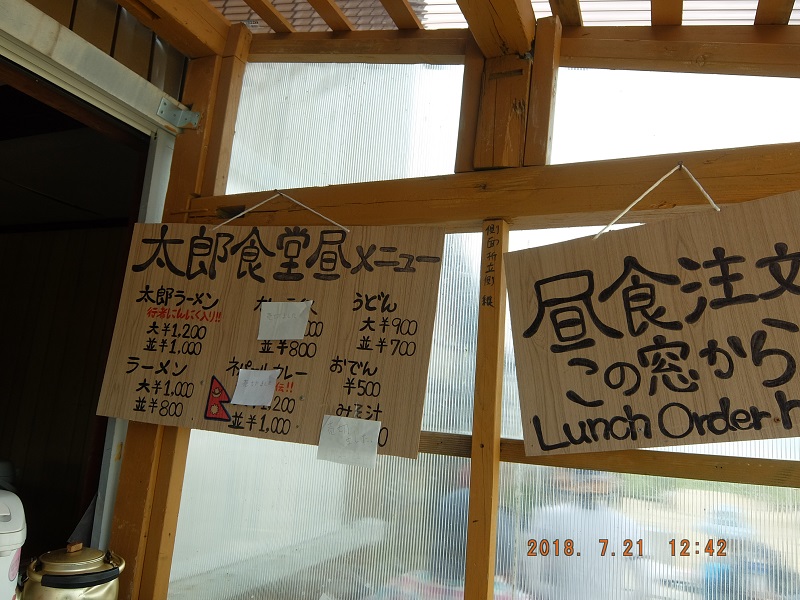 太郎食堂昼メニュー
太郎ラーメン
行者にんにく入り!!
大¥1,200
並¥1,000
ラーメン
大¥1,000
並¥800
並¥800
ネパールカレー
並¥1,000
うどん
大¥900
並¥700
おでん
¥500
みそ汁
昼食注文
この窓から
Lunch Order
2018. 7.21 12:42